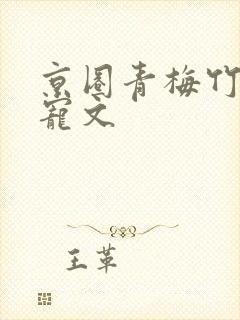 京圈青梅竹
宠文
王革